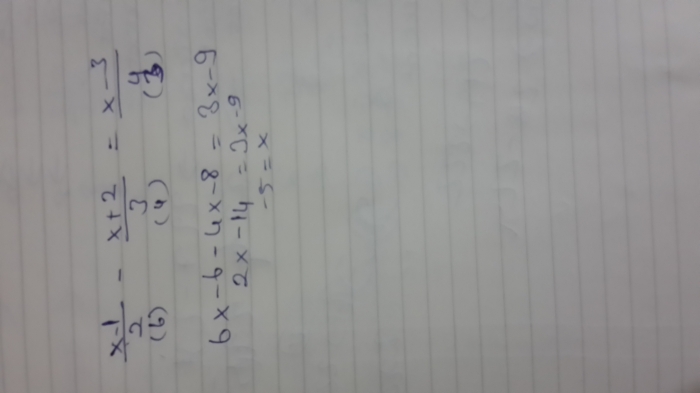 x-1/2 - x+2/3 = x-3/4
(6) (4) (3)
6x-6-4x-8 = 3x-9
2x-14 = 3x-9
-5=x